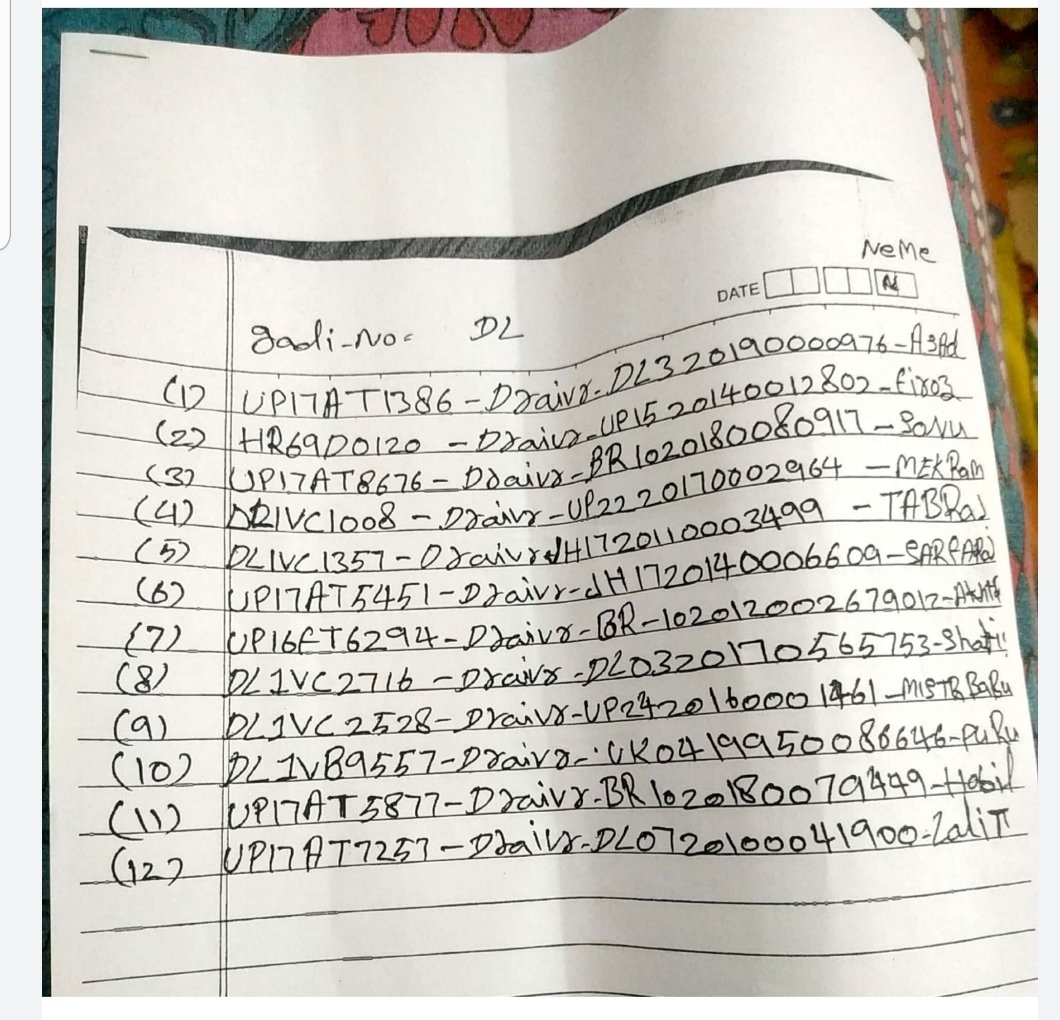 NeMe
DATE N
gadi-No= DL
(1) UP17AT1386-Draivr-DL320190000976-ASAd
(2) HR69D0120 - Draivr-UP1520140012802-firoz
(3) UP17AT8676-Draivr-BR1020180080917-SoNu
(4) DL1VC1008-Draivr-UP2220170002964-MEKRam
(5) DL1VC1357-Draivr JH1720110003499 - TABRaJ
(6) UP17AT5451-Draivr-JH1720140006609-SARFARaJ
(7) UP16FT6294-Draivr-BR-102012002679012-
(8) DL1VC2716-Draivr-DL0320170565753-
(9) DL1VC2528-Draivr-UP2420160001461-MISTR BaBu
(10) DL1VB9557-Draivr-UK0419950086646-PuRu
(11) UP17AT5877-Draivr-BR1020180079449-Habil
(12) UP17AT7257-Draivr-DL0720100041900-LaliT